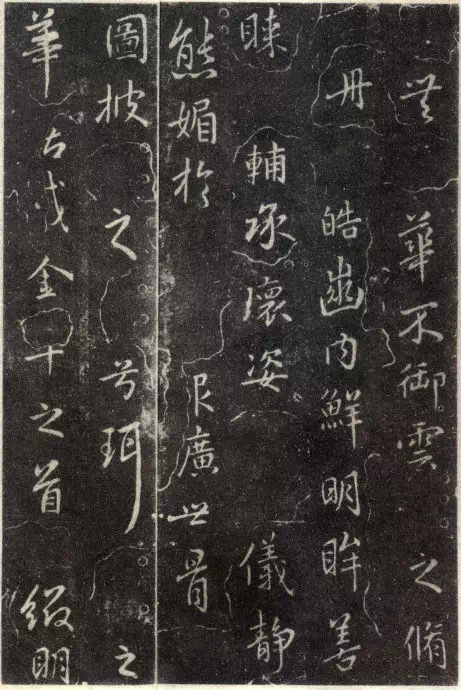 無華不御雲之脩
丹皓齒内鮮明眸善
睞輔承瓌姿儀靜
態媚於廣世骨
圖披之兮珥之
華金之首綴明